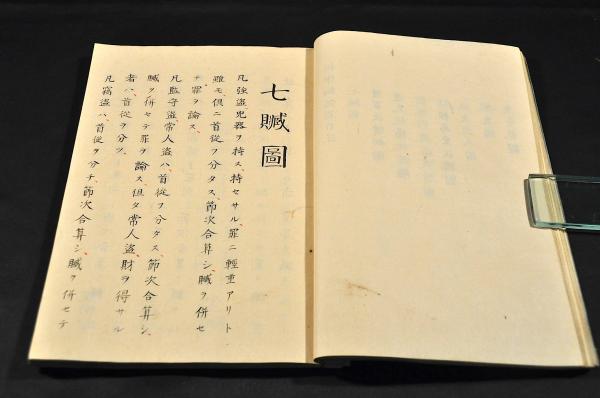 七贓圖
凡強盗兇器ヲ持ス、持セサル、罪ニ輕重アリト
雖モ、俱ニ首從ヲ分タス、節次合算シ、贓ヲ併セ
テ罪ヲ論ス、
凡監守盗常人盗ハ、首從ヲ分タス、節次合算シ、
贓ヲ併セテ罪ヲ論ス、但タ常人盗、財ヲ得サル
者ハ、首從ヲ分ツ、
凡竊盗ハ、首從ヲ分チ、節次合算シ、贓ヲ併セテ